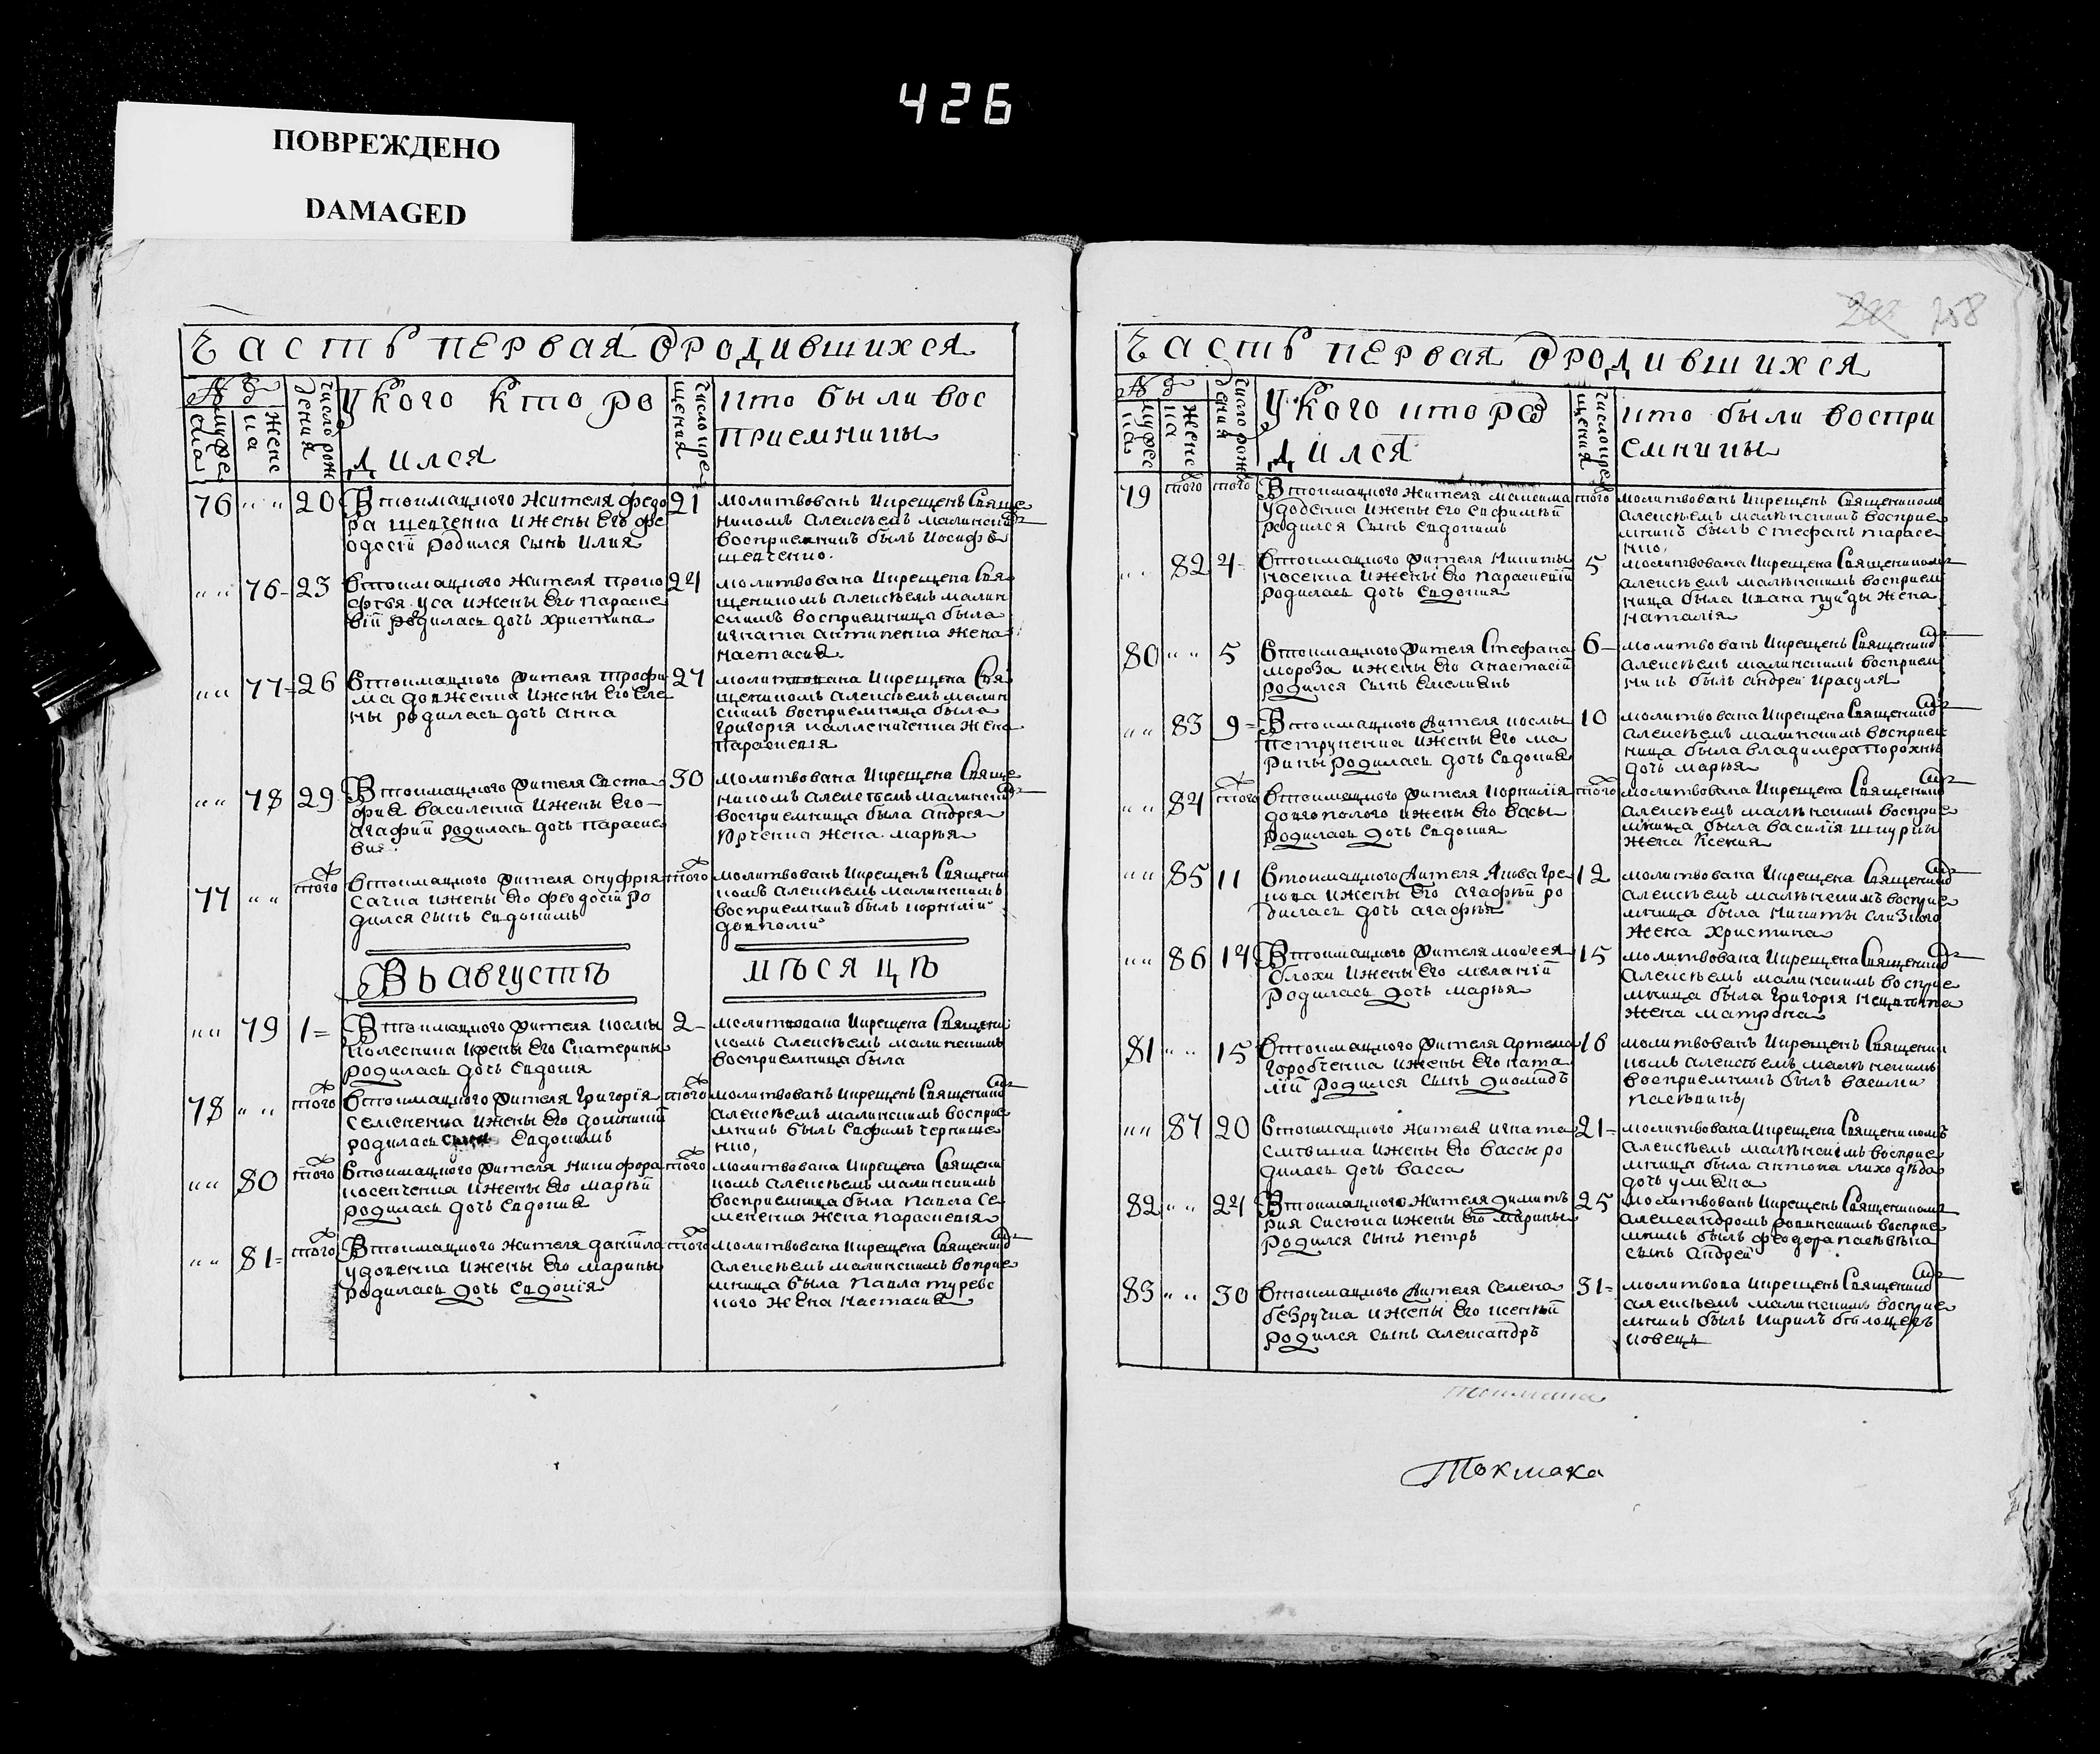 426
ПОВРЕЖДЕНО
DAMAGED
Часть первая о родившихся
№
мужеска
женска
число рождения
У кого кто ро
дился
число крещения
кто были вос
приемники
76 " " 20 В токмацкого жителя федо 21
ра шевченка и жены его фе
одосіи родился сынъ илия
молитвованъ и крещенъ Свяще
никомъ алексѣемъ малинским
восприемникъ былъ иосифъ
шевченко.
" " 76 23 В токмацкого жителя проко 24
фья уса и жены его параске
віи родилась дочь христина
молитвована и крещена Свя
щеникомъ алексѣемъ малин
скимъ восприемница была
игната антипенка жена
настасия
" " 77 26 В токмацкого жителя трофи 27
ма довженка и жены его еле
ны родилась дочь анна
молитвована и крещена Свя
щеникомъ алексѣемъ малин
скимъ восприемница была
григорія жена
параскевія
" " 78 29 В токмацкого жителя евста 30
фия василенка и жены его
агафии родилась дочь параске
вия
молитвована и крещена Свяще
никомъ алексѣемъ малинским
восприемница была андрея
юрченка жена марья
77 " " того В токмацкого жителя онуфрія того
сачка и жены его феодосіи ро
дился сынъ евдокимъ
молитвованъ и крещенъ Священи
комъ алексѣемъ малинскимъ
восприемникъ былъ корнілій
Въ августѣ мѣсяцѣ
" " 79 1 В токмацкого жителя космы 2
колесника и жены его екатерины
родилась дочь евдокия
молитвована и крещена Священи
комъ алексѣемъ малинскимъ
восприемница была
78 " " того В токмацкого жителя григорія того
семененка и жены его домникии
родилась сынъ Евдокимъ
молитвованъ и крещенъ Священик
алексѣемъ малинскимъ восприе
мникъ былъ евфимъ черныше
нко,
" " 80 того В токмацкого жителя никифора того
косенченка и жены его марѳы
родилась дочь евдокия
молитвована и крещена Священи
комъ алексѣемъ малинскимъ
восприемница была павла се
мененка жена параскевія
" " 81 того В токмацкого жителя даниила того
удовенка и жены его марины
родилась дочь евдокія
молитвована и крещена Священик
алексѣемъ малинскимъ восприе
мница была павла туревс
кого жена настасия
758
Часть первая о родившихся
№
мужеска
женска
число рождения
У кого кто ро
дился
число крещения
кто были воспри
емники
79 того того В токмацкого жителя максима того
удовенка и жены его евфиміи
родился сынъ евдокимъ
молитвованъ и крещенъ Священикомъ
алексѣемъ малѣнскимъ восприе
мникъ былъ стефанъ тарасе
нко,
" " 82 4 В токмацкого жителя никиты 5
носенка и жены его параскевіи
родилась дочь евдокия
молитвована и крещена Священиком
алексѣемъ малѣнскимъ восприем
ница была ивана жена
наталія
80 " " 5 В токмацкого жителя стефана 6
мороза и жены его анастасіи
родился сынъ емелианъ
молитвованъ и крещенъ Священик
алексѣемъ малинскимъ восприем
никъ былъ андреи красуля
" " 83 9 В токмацкого жителя космы 10
петрученка и жены его ма
рины родилась дочь евдокия
молитвована и крещена Священик
алексѣемъ малинскимъ восприем
ница была владимера
дочь марья
" " 84 того В токмацкого жителя корнилія того
довгополого и жены его васы
родилась дочь евдокия
молитвована и крещена Священик
алексѣемъ малѣнскимъ восприе
мница была василія шкурки
жена ксения
" " 85 11 В токмацкого жителя якова гре 12
кова и жены его агафіи ро
дилась дочь агафья
молитвована и крещена Священик
алексѣемъ малѣнскимъ восприе
мница была никиты слизкого
жена христина
" " 86 14 В токмацкого жителя моисея 15
блохи и жены его меланіи
родилась дочь марья
молитвована и крещена Священик
алексѣемъ малинскимъ восприе
мница была григорія
жена матрона
81 " " 15 В токмацкого жителя артема 16
горобченка и жены его ната
ліи родился сынъ диомидъ
молитвованъ и крещенъ Священи
комъ алексѣемъ малѣнскимъ
восприемникъ былъ василии
пасѣвинъ,
" " 87 20 В токмацкого жителя игната 21
и жены его вассы ро
дилась дочь васса
молитвована и крещена Священикомъ
алексѣемъ малѣнскимъ восприе
мница была антона лиходѣда
дочь улияна
82 " " 24 В токмацкого жителя димит 25
рия сисюка и жены его марины
родился сынъ петръ
молитвованъ и крещенъ Священикомъ
александромъ восприе
мникъ былъ феодора
сынъ андреи
83 " " 30 В токмацкого жителя семена 31
безручка и жены его ксеніи
родился сынъ александръ
молитвова и крещенъ Священик
алексѣемъ малинскимъ восприе
мникъ былъ кирилъ
ковецъ
Токмака